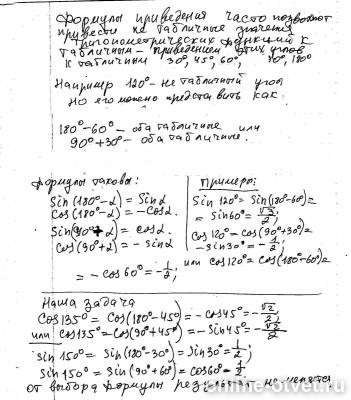 Формулы приведения часто позволяют
привести не табличные значения
тригонометрических функций к
табличным – приведением этих углов
к табличным 30°, 45°, 60°, 90°, 180°
Например 120° – не табличный угол
Но его можно представить как:
180° – 60° – оба табличные или
90° + 30° – оба табличные.
Формулы таковы:
Sin(180° – α) = Sin α
Cos(180° – α) = – cos α.
Sin(90° + α) = cos α.
Cos(90° + α) = – sin α
Примеры:
Sin 120° = Sin(180° – 60°) =
= Sin 60° = √3/2;
Cos 120° = cos(90° + 30°) =
– Sin 30° = – 1/2;
или cos 120° = cos(180° – 60°) =
= – cos 60° = – 1/2;
Наша задача
Cos 135° = Cos(180° – 45°) = – cos 45° = – √2/2;
или cos 135° = Cos(90° + 45°) = – Sin 45° = – √2/2
Sin 150° = Sin(180° – 30°) = Sin 30° = 1/2;
Sin 150° = Sin(90° + 60°) = cos 60° = 1/2.
от выбора формулы результат не меняется
online-otvet.ru